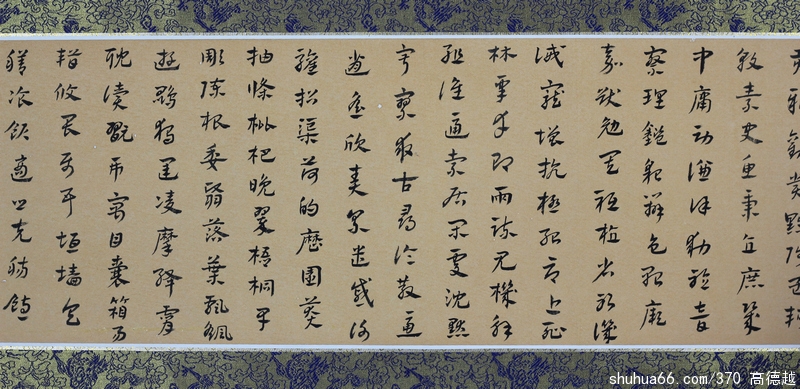 貢新勸賞黜陟孟軻
敦素史魚秉直庶幾
中庸勞謙謹勅聆音
察理鑑貌辨色貽厥
嘉猷勉其祗植省躬譏
誡寵增抗極殆辱近恥
林皋幸即兩疏見機解
組誰逼索居閑處沈默
寂寥求古尋論散慮
逍遙欣奏累遣慼謝
歡招渠荷的歷園莽
抽條枇杷晚翠梧桐早
彫陳根委翳落葉飄颻
遊鵾獨運凌摩絳霄
耽讀翫市寓目囊箱易
輶攸畏屬耳垣墻具
膳飡飯適口充腸飽
shuhua66.com/370 高德越